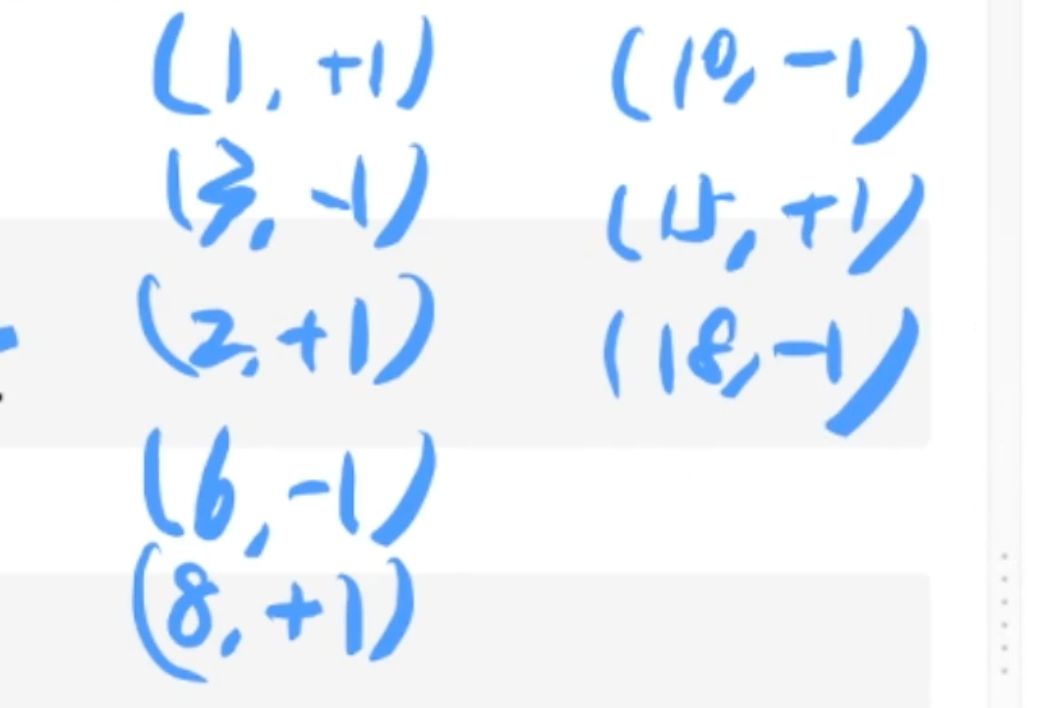 (1, +1)
(3, -1)
(2, +1)
(6, -1)
(8, +1)
(10, -1)
(15, +1)
(18, -1)